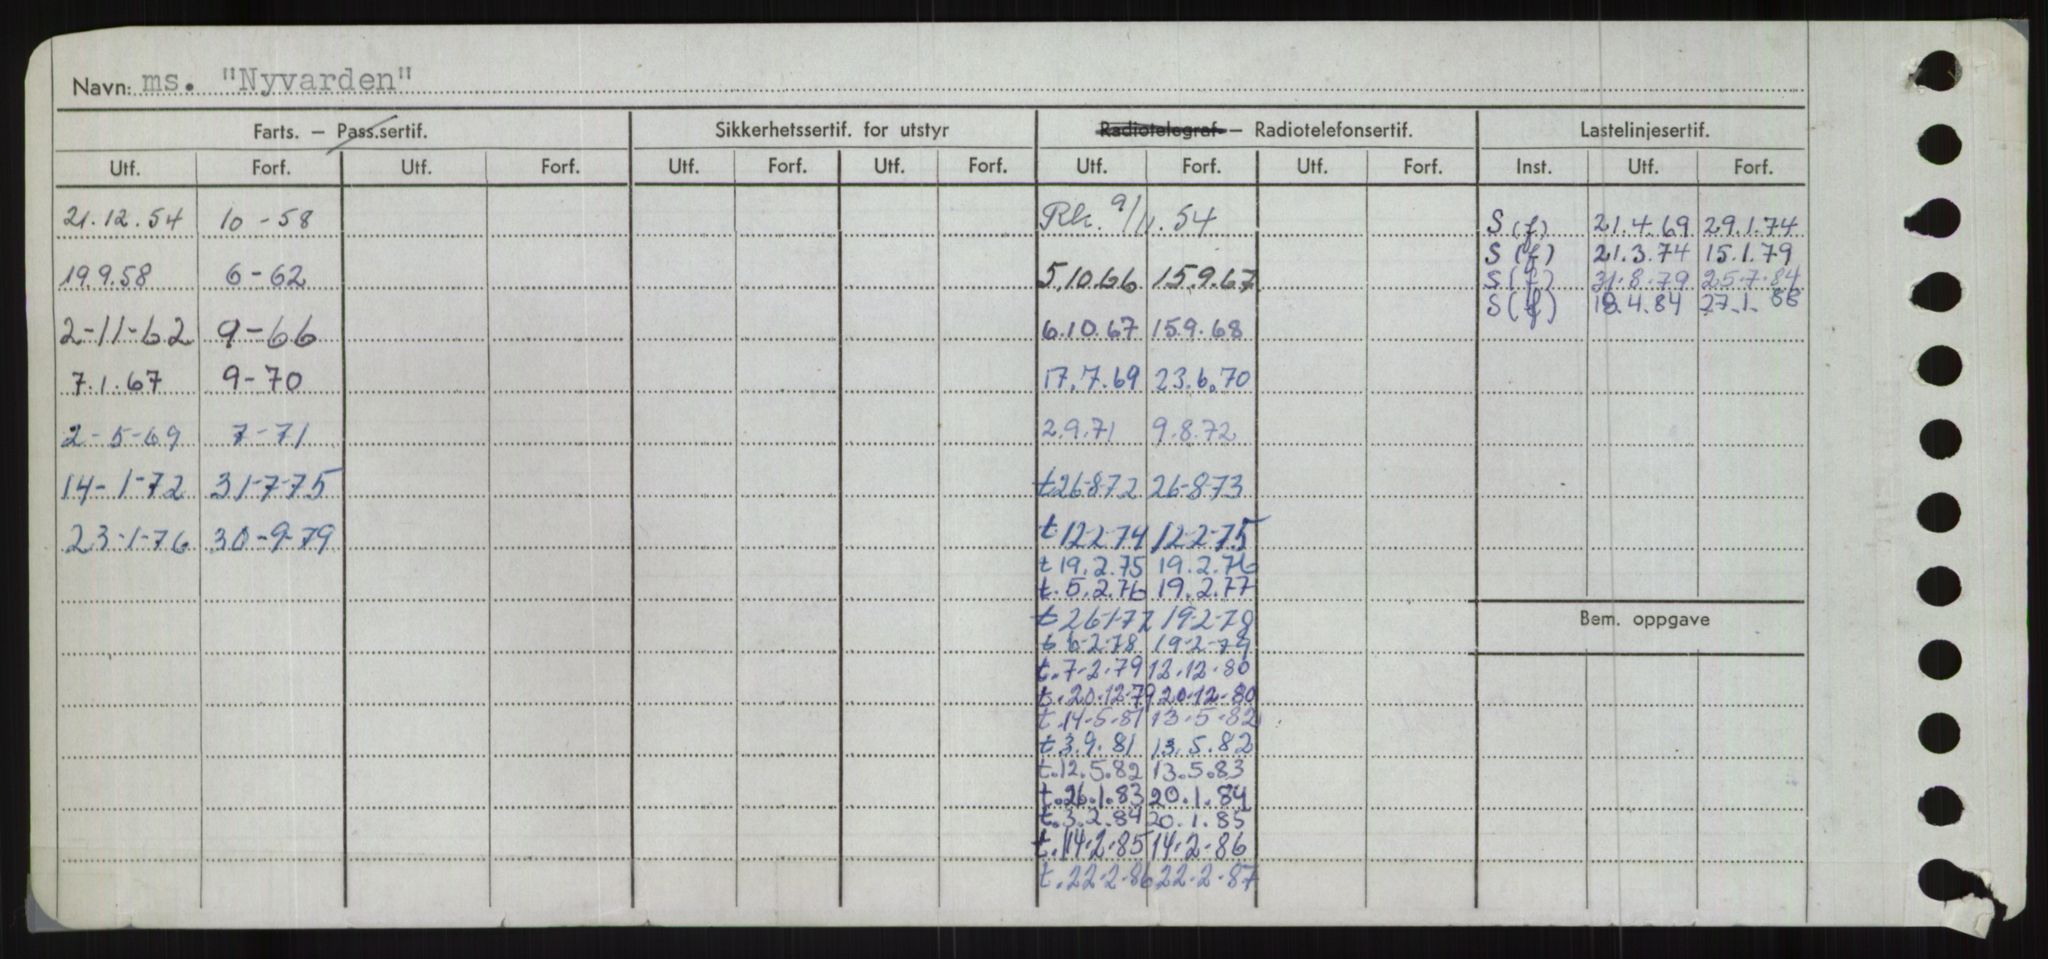 Navn: ms. "Nyvarden"
Farts. — Pass.sertif. Sikkerhetssertif. for utstyr Radiotelegraf- — Radiotelefonsertif. Lastelinjesertif.
Utf. Forf. Utf. Forf. Utf. Forf. Utf. Forf. Utf. Forf. Utf. Forf. Inst. Utf. Forf.
21.12.54 10-58 Rk. 9/11.54 S(f) 21.4.69 29.1.74
S(f) 21.3.74 15.1.79
19.9.58 6-62 5.10.66 15.9.67 S(f) 31.8.79 25.7.84
S(f) 18.4.84 27.1.88
2-11-62 9-66 6.10.67 15.9.68
7.1.67 9-70 17.7.69 23.6.70
2-5-69 7-71 2.9.71 9.8.72
14-1-72 31-7-75 t26-8-72 26-8-73
23-1-76 30-9-79 t.12-2-74 12-2-75
t 19.2.75 19.2.76
t.5.2.76 19.2.77
t 26-1-77 19-2-78
Bem. oppgave
t 6-2-78 19-2-79
t.7-2-79 12.12-80
t.20.12-79 20.12-80
t.14-5-81 13-5-82
t.3.9.81 13.5.82
t.12.5.82 13.5.83
t.26.1.83 20.1.84
t.3.2.84 20.1.85
t.14.2.85 14.2-86
t.22-2-86 22-2-87